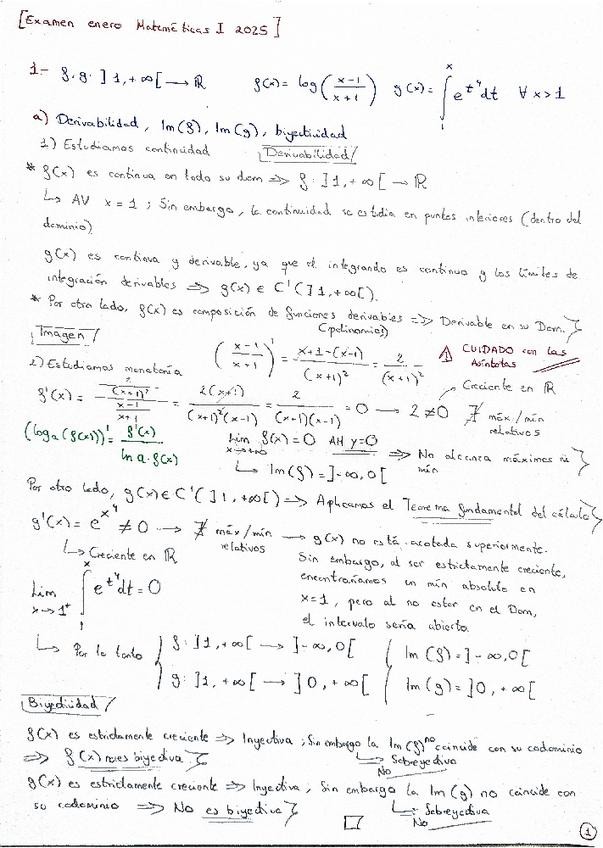 [Examen enero Matemáticas I 2025]
1- f, g: ]1, +∞[ → ℝ f(x) = log((x-1)/(x+1)) g(x) = ∫₁ˣ e^(t⁴) dt ∀ x>1
a) Derivabilidad, Im(f), Im(g), biyectividad
1) Estudiamos continuidad Derivabilidad/
* f(x) es continua en todo su dom ⇒ f: ]1, +∞[ → ℝ
↳ AV x = 1; Sin embargo, la continuidad se estudia en puntos interiores (dentro del
dominio)
g(x) es continua y derivable, ya que el integrando es continuo y los límites de
integración derivables ⇒ g(x) ∈ C¹(]1, +∞[).
* Por otro lado, f(x) es composición de funciones derivables ⇒ Derivable en su Dom.
(polinomios)
Imagen/
((x-1)/(x+1))' = (x+1-(x-1))/(x+1)² = 2/(x+1)² ⚠ CUIDADO con las
Asíntotas
2) Estudiamos monotonía
f'(x) = (2/(x+1)²)/((x-1)/(x+1)) = 2(x+1)/((x+1)²(x-1)) = 2/((x+1)(x-1)) = 0 → 2 ≠ 0 ∄ máx/mín
relativos
Creciente en ℝ
(logₐ(f(x)))' = f'(x)/(ln a · f(x)) Lim x→+∞ f(x) = 0 AH y=0 ⇒ No alcanza máximos ni
mín
↳ Im(f) = ]-∞, 0[
Por otro lado, g(x) ∈ C¹(]1, +∞[) ⇒ Aplicamos el Teorema fundamental del cálculo
g'(x) = e^(x⁴) ≠ 0 → ∄ máx/mín
relativos → g(x) no está acotada superiormente.
↳ Creciente en ℝ
Sin embargo, al ser estrictamente creciente,
encontraríamos un mín absoluto en
x=1, pero al no estar en el Dom,
el intervalo sería abierto.
Lim x→1⁺ ∫₁ˣ e^(t⁴) dt = 0
↳ Por lo tanto { f: ]1, +∞[ → ]-∞, 0[ { Im(f) = ]-∞, 0[
g: ]1, +∞[ → ]0, +∞[ Im(g) = ]0, +∞[
Biyectividad/
f(x) es estrictamente creciente ⇒ Inyectiva; Sin embargo la Im(f) no coincide con su codominio
↳ Sobreyectiva
No
⇒ f(x) no es biyectiva
g(x) es estrictamente creciente ⇒ Inyectiva; Sin embargo la Im(g) no coincide con
su codominio ⇒ No es biyectiva ↳ Sobreyectiva
No
□
1